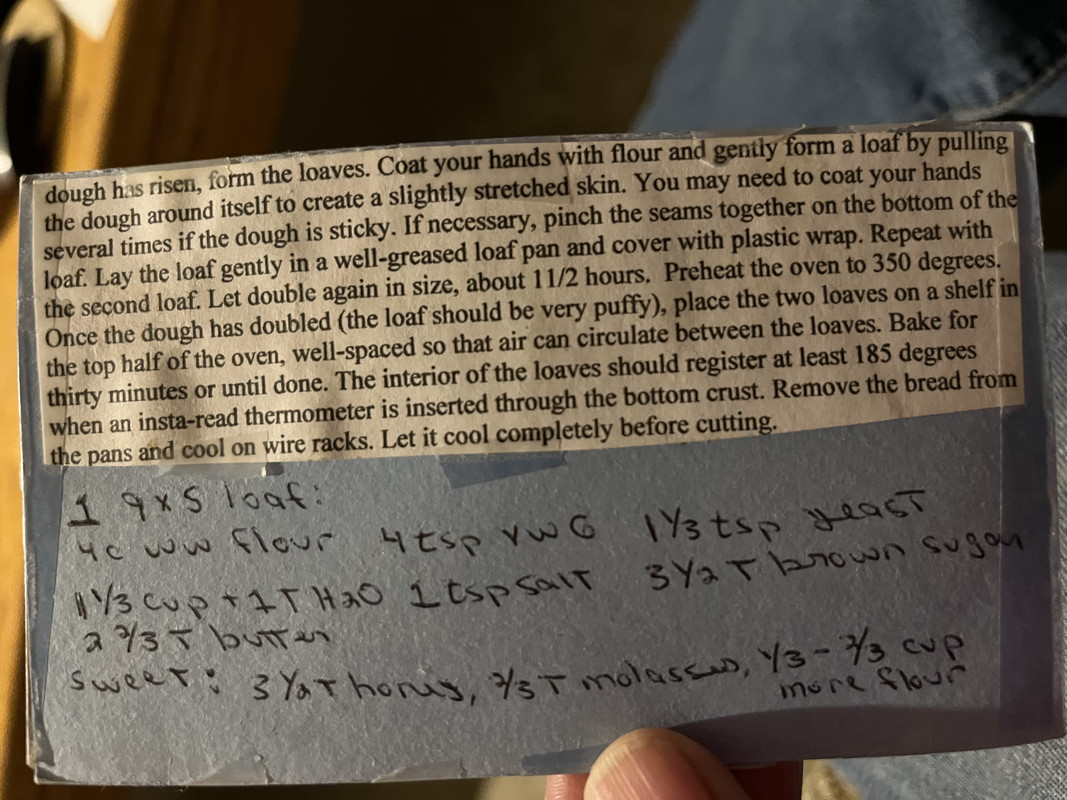 dough has risen, form the loaves. Coat your hands with flour and gently form a loaf by pulling
the dough around itself to create a slightly stretched skin. You may need to coat your hands
several times if the dough is sticky. If necessary, pinch the seams together on the bottom of the
loaf. Lay the loaf gently in a well-greased loaf pan and cover with plastic wrap. Repeat with
the second loaf. Let double again in size, about 11/2 hours. Preheat the oven to 350 degrees.
Once the dough has doubled (the loaf should be very puffy), place the two loaves on a shelf in
the top half of the oven, well-spaced so that air can circulate between the loaves. Bake for
thirty minutes or until done. The interior of the loaves should register at least 185 degrees
when an insta-read thermometer is inserted through the bottom crust. Remove the bread from
the pans and cool on wire racks. Let it cool completely before cutting.
1 9x5 loaf:
4c ww flour 4tsp vwG 1 1/3 tsp yeast
1 1/3 cup + 1T H2O 1 tsp salt 3 1/2 T brown sugar
2 2/3 T butter
sweet: 3 1/2 T honey, 2/3 T molasses, 1/3 - 2/3 cup
more flour